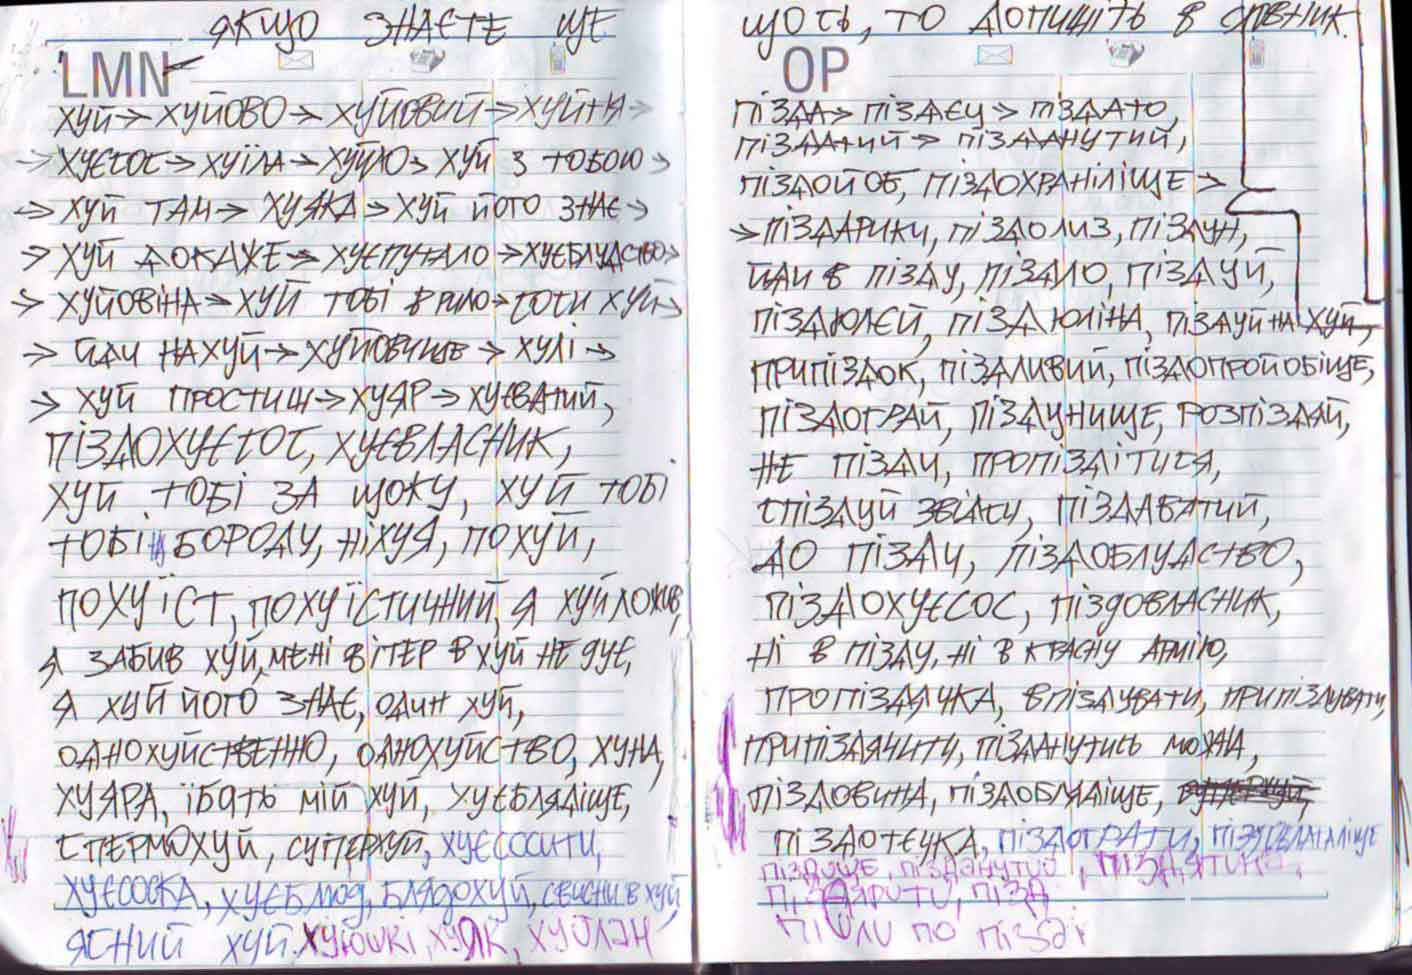 ЯКЩО ЗНАЄТЕ ЩЕ
LMN
ХУЙ→ХУЙОВО→ХУЙОВИЙ→ХУЙНЯ→
→ХУЄСОС→ХУЇЛА→ХУЙЛО→ХУЙ З ТОБОЮ→
→ХУЙ ТАМ→ХУЯКА→ХУЙ ЙОГО ЗНАЄ→
→ХУЙ ДОКАЖЕ→ХУЄПУТАЛО→ХУЄБЛУДСТВО→
→ХУЙОВІНА→ХУЙ ТОБІ В РИЛО→СОСИ ХУЙ→
→ЙДИ НАХУЙ→ХУЙОВИЩЕ→ХУЛІ→
→ХУЙ ПРОСТИШ→ХУЯР→ХУЄВАТИЙ,
ПІЗДОХУЄСОС, ХУЄВЛАСНИК,
ХУЙ ТОБІ ЗА ЩОКУ, ХУЙ ТОБІ
ТОБІ НА БОРОДУ, НІХУЯ, ПОХУЙ,
ПОХУЇСТ, ПОХУЇСТИЧНИЙ, Я ХУЙ ЛОЖИВ,
Я ЗАБИВ ХУЙ, МЕНІ ВІТЕР В ХУЙ НЕ ДУЄ,
Я ХУЙ ЙОГО ЗНАЄ, ОДИН ХУЙ,
ОДНОХУЙСТВЕННО, ОДНОХУЙСТВО, ХУНА,
ХУЯРА, ЇБАТЬ МІЙ ХУЙ, ХУЄБЛЯДІЩЕ,
СПЕРМОХУЙ, СУПЕРХУЙ, ХУЄСОСИТИ,
ХУЄСОСКА, ХУЄБЛЮД, БЛЯДОХУЙ, СВИСНИ В ХУЙ
ЯСНИЙ ХУЙ. ХУЮШКІ, ХУЯК, ХУЙЛАН
ЩОСЬ, ТО ДОПИШІТЬ В СЛОВНИК.
OP
ПІЗДА→ПІЗДЄЦ→ПІЗДАТО,
ПІЗДАТИЙ→ПІЗДАНУТИЙ,
ПІЗДОЙОБ, ПІЗДОХРАНІЛІЩЕ→
→ПІЗДАРИКИ, ПІЗДОЛИЗ, ПІЗДУН,
ЙДИ В ПІЗДУ, ПІЗДЛО, ПІЗДУЙ,
ПІЗДЮЛЄЙ, ПІЗДЮЛІНА, ПІЗДУЙ НА ХУЙ,
ПРИПІЗДОК, ПІЗДЛИВИЙ, ПІЗДОПРОЙОБІЩЕ,
ПІЗДОГРАЙ, ПІЗДУНИЩЕ, РОЗПІЗДЯЙ,
НЕ ПІЗДИ, ПРОПІЗДІТИСЯ,
СПІЗДУЙ ЗВІДСИ, ПІЗДАБАТИЙ,
ДО ПІЗДИ, ПІЗДОБЛУДСТВО,
ПІЗДОХУЄСОС, ПІЗДОВЛАСНИК,
НІ В ПІЗДУ, НІ В КРАСНУ АРМІЮ,
ПРОПІЗДЯЧКА, ВПІЗДУВАТИ, ПРИПІЗДУВАТИ,
ПРИПІЗДЯЧИТИ, ПІЗДАНУТИСЬ МОЖНА,
ПІЗДОВИНА, ПІЗДОБЛЯДІЩЕ,
ПІЗДОТЕЧКА, ПІЗДОГРАТИ,
ПІЗДИЩЕ, ПІЗДАНУТИЙ, ПІЗДЯТИНА,
ПІЗД
ПО ПІЗДІ